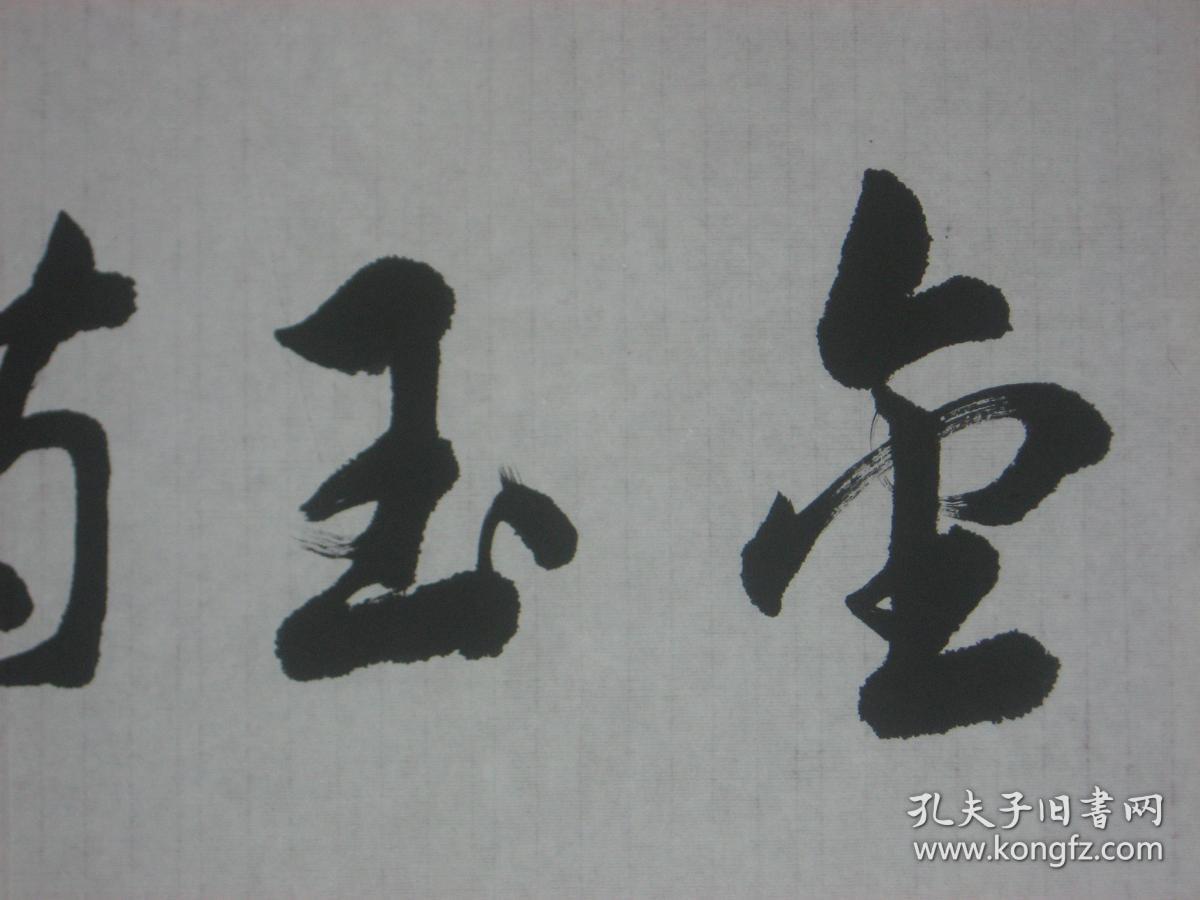 金玉
孔夫子旧書网
www.kongfz.com